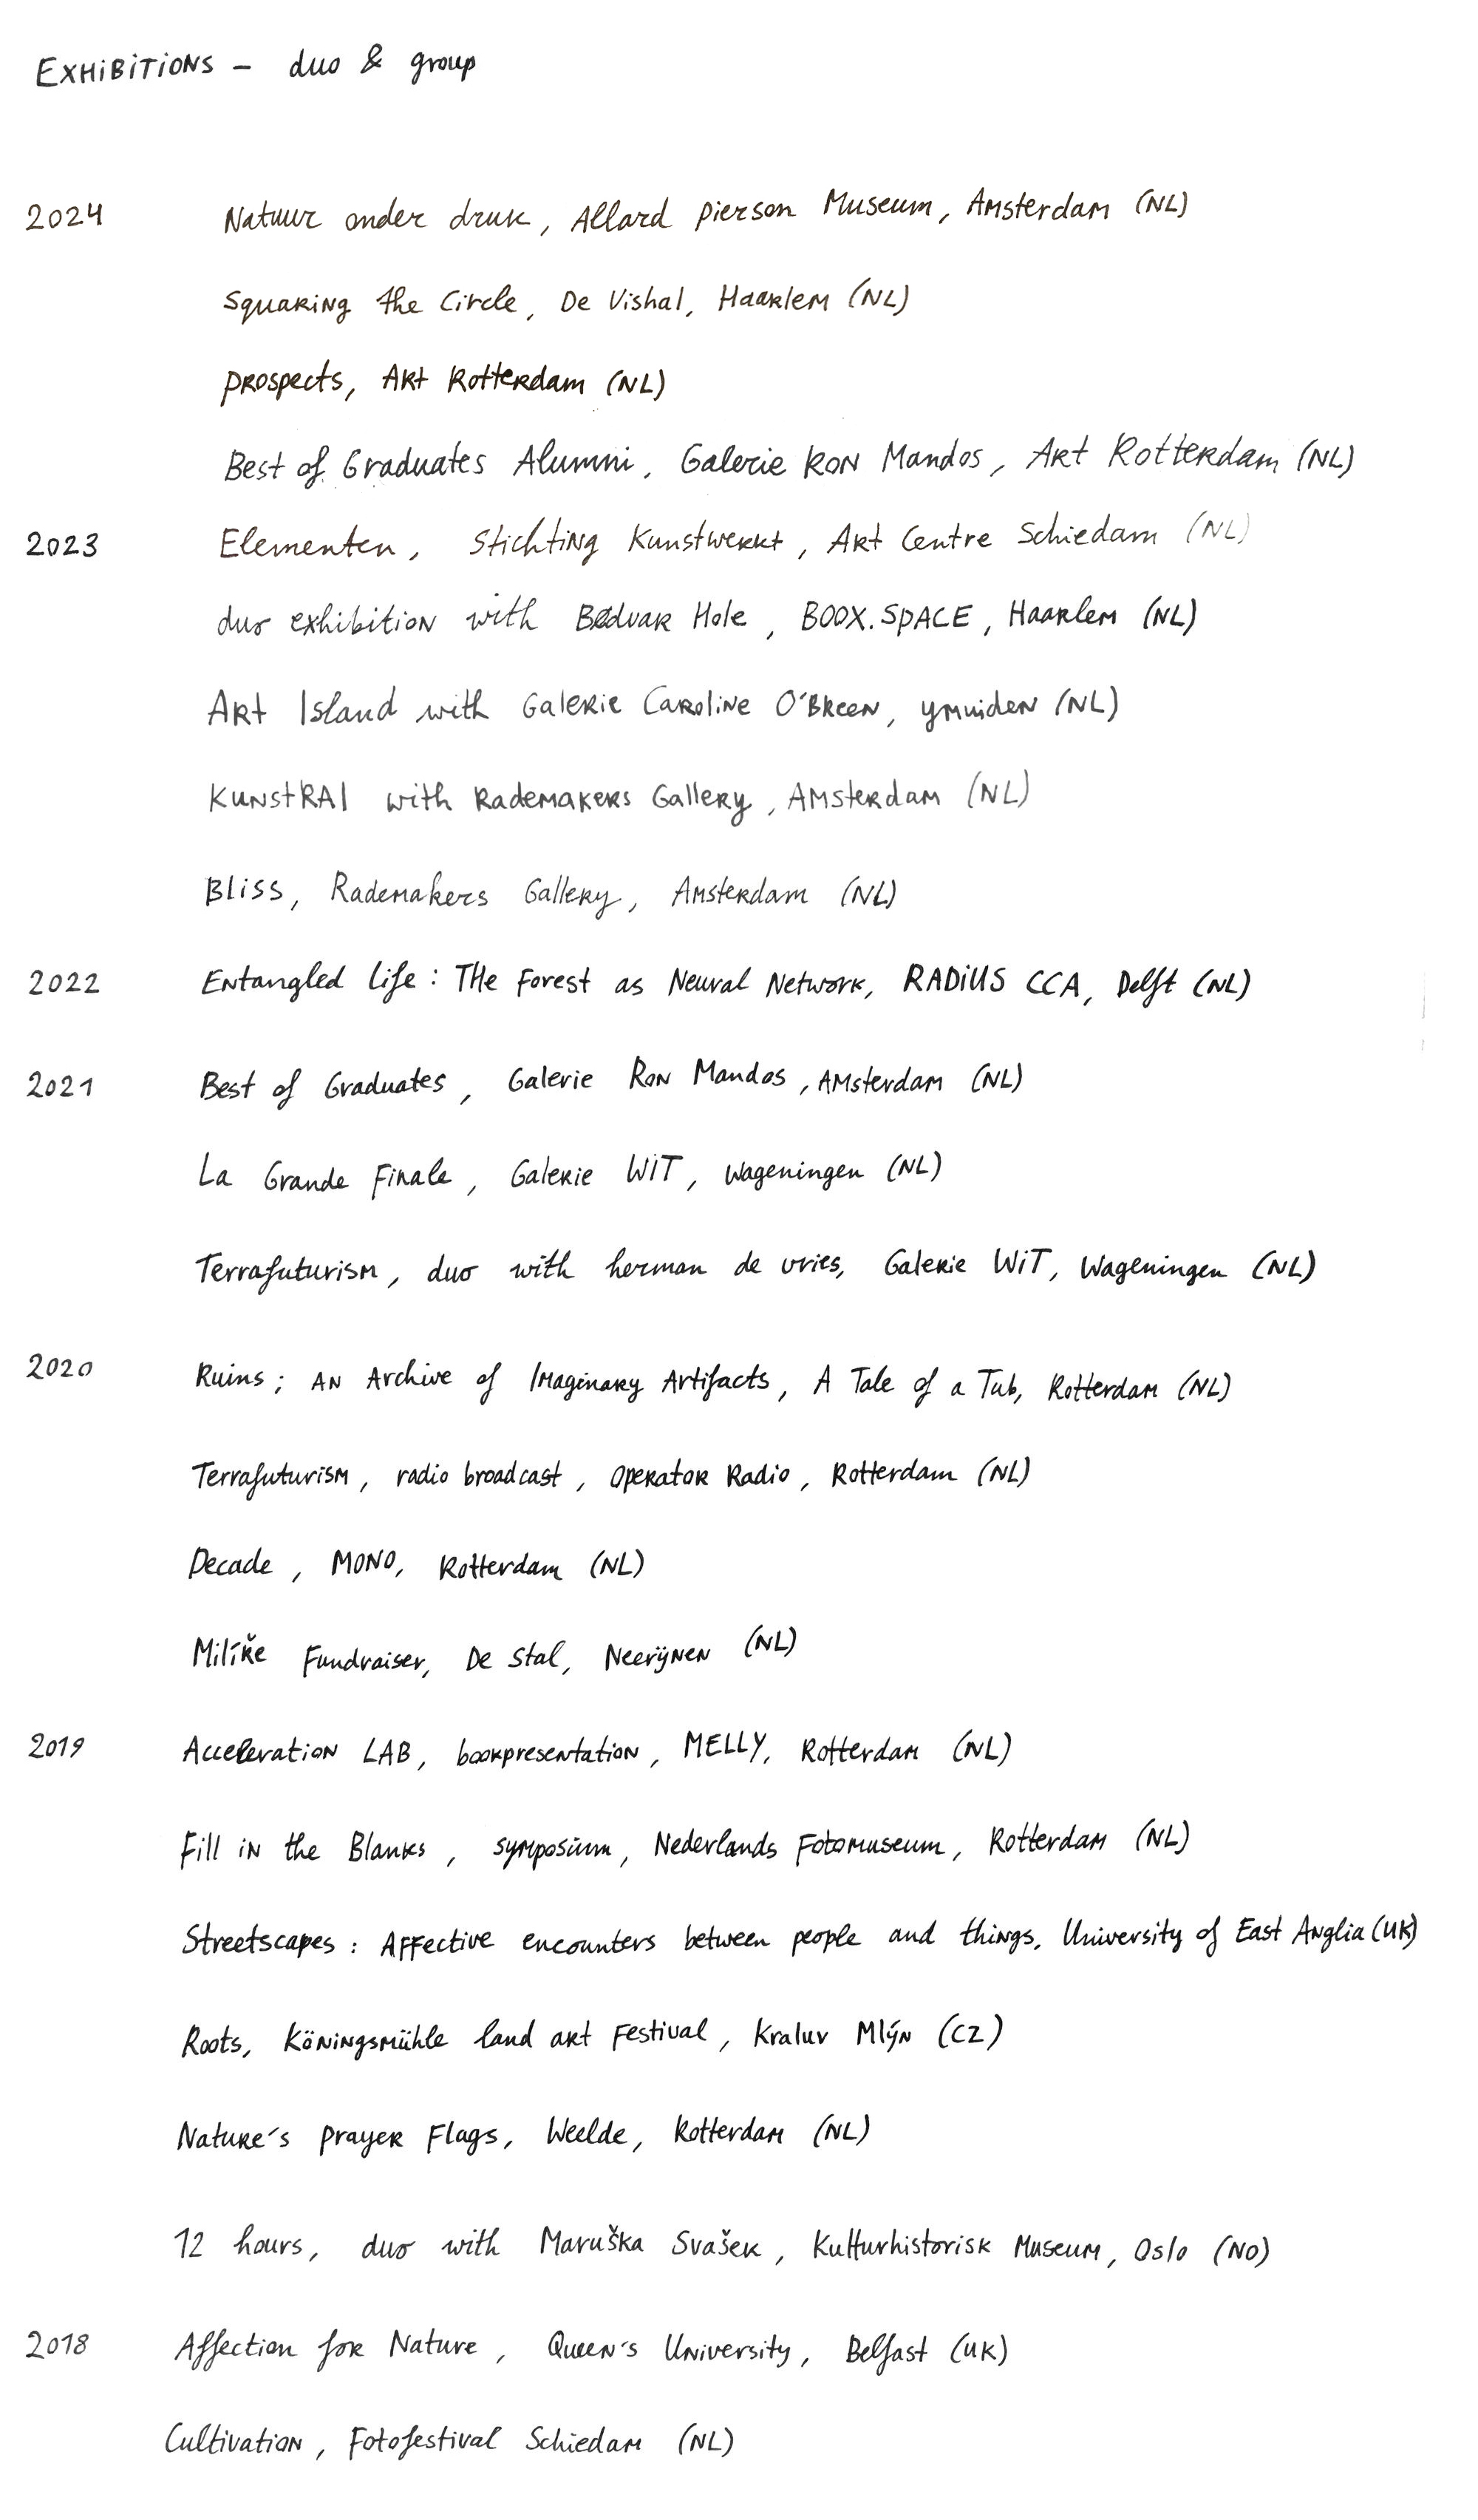 EXHiBiTiONS - duo & group
2024 Natuur onder druk, Allard Pierson Museum, Amsterdam (NL)
Squaring the Circle, De Vishal, Haarlem (NL)
Prospects, Art Rotterdam (NL)
Best of Graduates Alumni, Galerie Ron Mandos, Art Rotterdam (NL)
2023 Elementen, Stichting Kunstwerkt, Art Centre Schiedam (NL)
duo exhibition with Bødvar Hole, BOOX.SPACE, Haarlem (NL)
Art Island with Galerie Caroline O'Breen, Ymuiden (NL)
KunstRAI with Rademakers Gallery, Amsterdam (NL)
Bliss, Rademakers Gallery, Amsterdam (NL)
2022 Entangled Life: The Forest as Neural Network, RADiUS CCA, Delft (NL)
2021 Best of Graduates, Galerie Ron Mandos, Amsterdam (NL)
La Grande Finale, Galerie WiT, Wageningen (NL)
Terrafuturism, duo with herman de vries, Galerie WiT, Wageningen (NL)
2020 Ruins; An Archive of Imaginary Artifacts, A Tale of a Tub, Rotterdam (NL)
Terrafuturism, radio broadcast, Operator Radio, Rotterdam (NL)
Decade, MONO, Rotterdam (NL)
Milíře Fundraiser, De Stal, Neerÿnen (NL)
2019 Acceleration LAB, bookpresentation, MELLY, Rotterdam (NL)
Fill in the Blanks, symposium, Nederlands Fotomuseum, Rotterdam (NL)
Streetscapes: Affective encounters between people and things, University of East Anglia (UK)
Roots, Köningsmühle land art Festival, Kraluv Mlýn (CZ)
Nature's Prayer Flags, Weelde, Rotterdam (NL)
12 hours, duo with Maruška Svašek, Kulturhistorisk Museum, Oslo (NO)
2018 Affection for Nature, Queen's University, Belfast (UK)
Cultivation, Fotofestival Schiedam (NL)